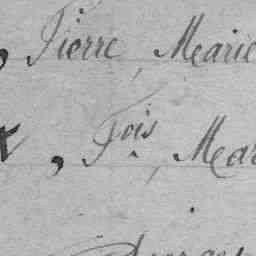 , Pierre, Marie
, F.ois, Mar